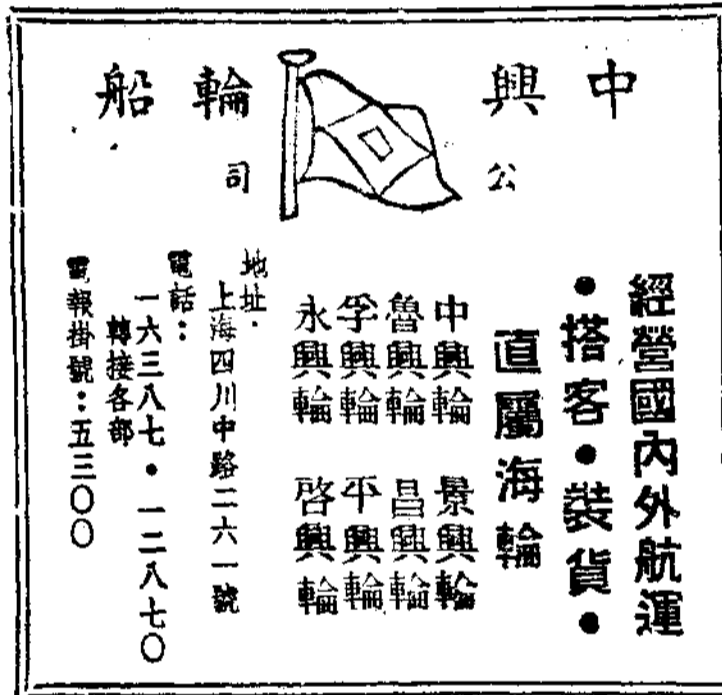 中興輪船
公司
經營國內外航運
•搭客•裝貨•
直屬海輪
中興輪 景興輪
魯興輪 昌興輪
孚興輪 平興輪
永興輪 啓興輪
地址.
上海四川中路二六一號
電話：
一六三八七•一二八七〇
轉接各部
電報掛號：五三〇〇